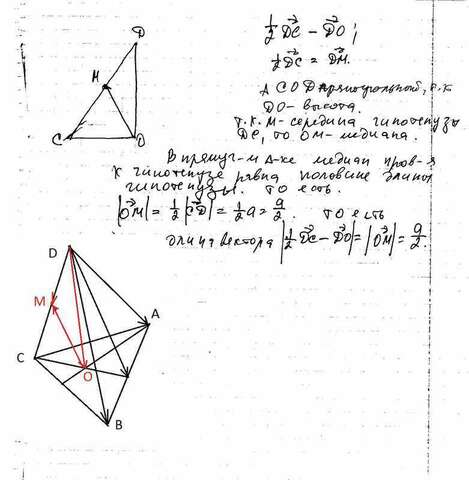 D
M
C
O
½ DC→ − DO→;
½ DC→ = DM→.
Δ COD прямоугольный, т.к.
DO - высота.
т.к. M - середина гипотенузы
DC, то OM - медиана.
В прямоуг-м Δ-ке медиана пров-я
к гипотенузе равна половине длины
гипотенузы. то есть.
|OM→| = ½|CD→| = ½a = a/2. то есть
длина вектора |½ DC→ − DO→| = |OM→| = a/2.
D
M
A
C
O
B